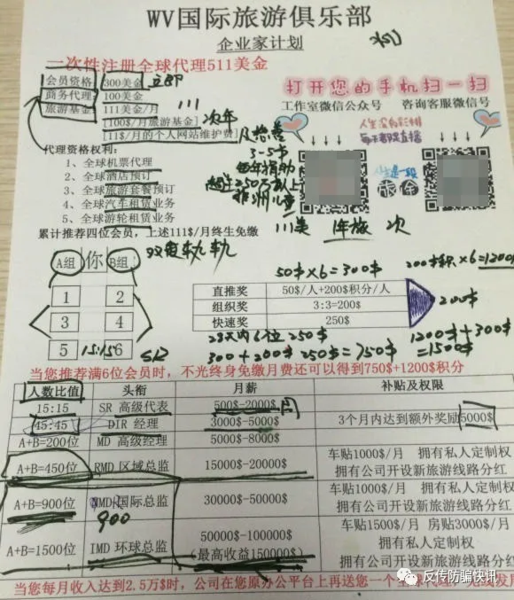 WV国际旅游俱乐部
企业家计划
一次性注册全球代理511美金
会员资格 300美金
商务代理 100美金
旅游基金 111美金/月
[100$/月旅游基金]
[11$/月的个人网站维护费]
打开您的手机扫一扫
工作室微信公众号 咨询客服微信号
111
次年
3-5$
每年捐助
代理资格权利:
1、全球机票代理
2、全球酒店预订
3、全球旅游套餐预订
4、全球汽车租赁业务
5、全球游轮租赁业务
累计推荐四位会员,上述111$/月终生免缴
111美 年旅 次
双更轨轨
A组 你 B组
1 2
3 4
5 6
15:15
50$×6=300$
200$积×6=1200
直推奖 50$/人+200$积分/人
组织奖 3:3=200$
快速奖 250$
200$
28天内6位 250$
300+200$ 250$=750$
1200$+300$
=1500$
当您推荐满6位会员时,不光终身免缴月费还可以得到750$+1200$积分
人数比值 头衔 月薪 补贴及权限
15:15 SR 高级代表 500$-2000$
45:45 DIR 经理 3000$-5000$ 3个月内达到额外奖励5000$
A+B=200位 MD 高级经理 5000$-8000$
A+B=450位 RMD 区域总监 15000$-20000$ 车贴1000$/月 拥有私人定制权
拥有公司开设新旅游线路分红
A+B=900位 NMD 国际总监 30000$-50000$ 车贴1000$/月 拥有私人定制权
拥有公司开设新旅游线路分红
900
A+B=1500位 IMD 环球总监 50000$-100000$
(最高收益150000$) 车贴1500$/月 房贴3000$/月
拥有私人定制权
拥有公司开设新旅游线路分红
当您每月收入达到2.5万$时,公司在您原办公平台上再送您一个
反传防骗快讯